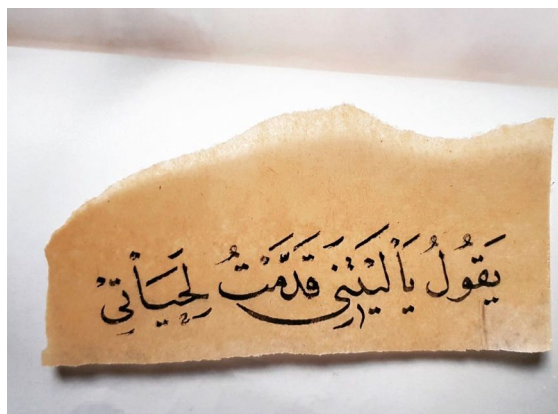 يَقُولُ يَاْ لَيْتَنِي قَدَّمْتُ لِحَيَاْتِيْ